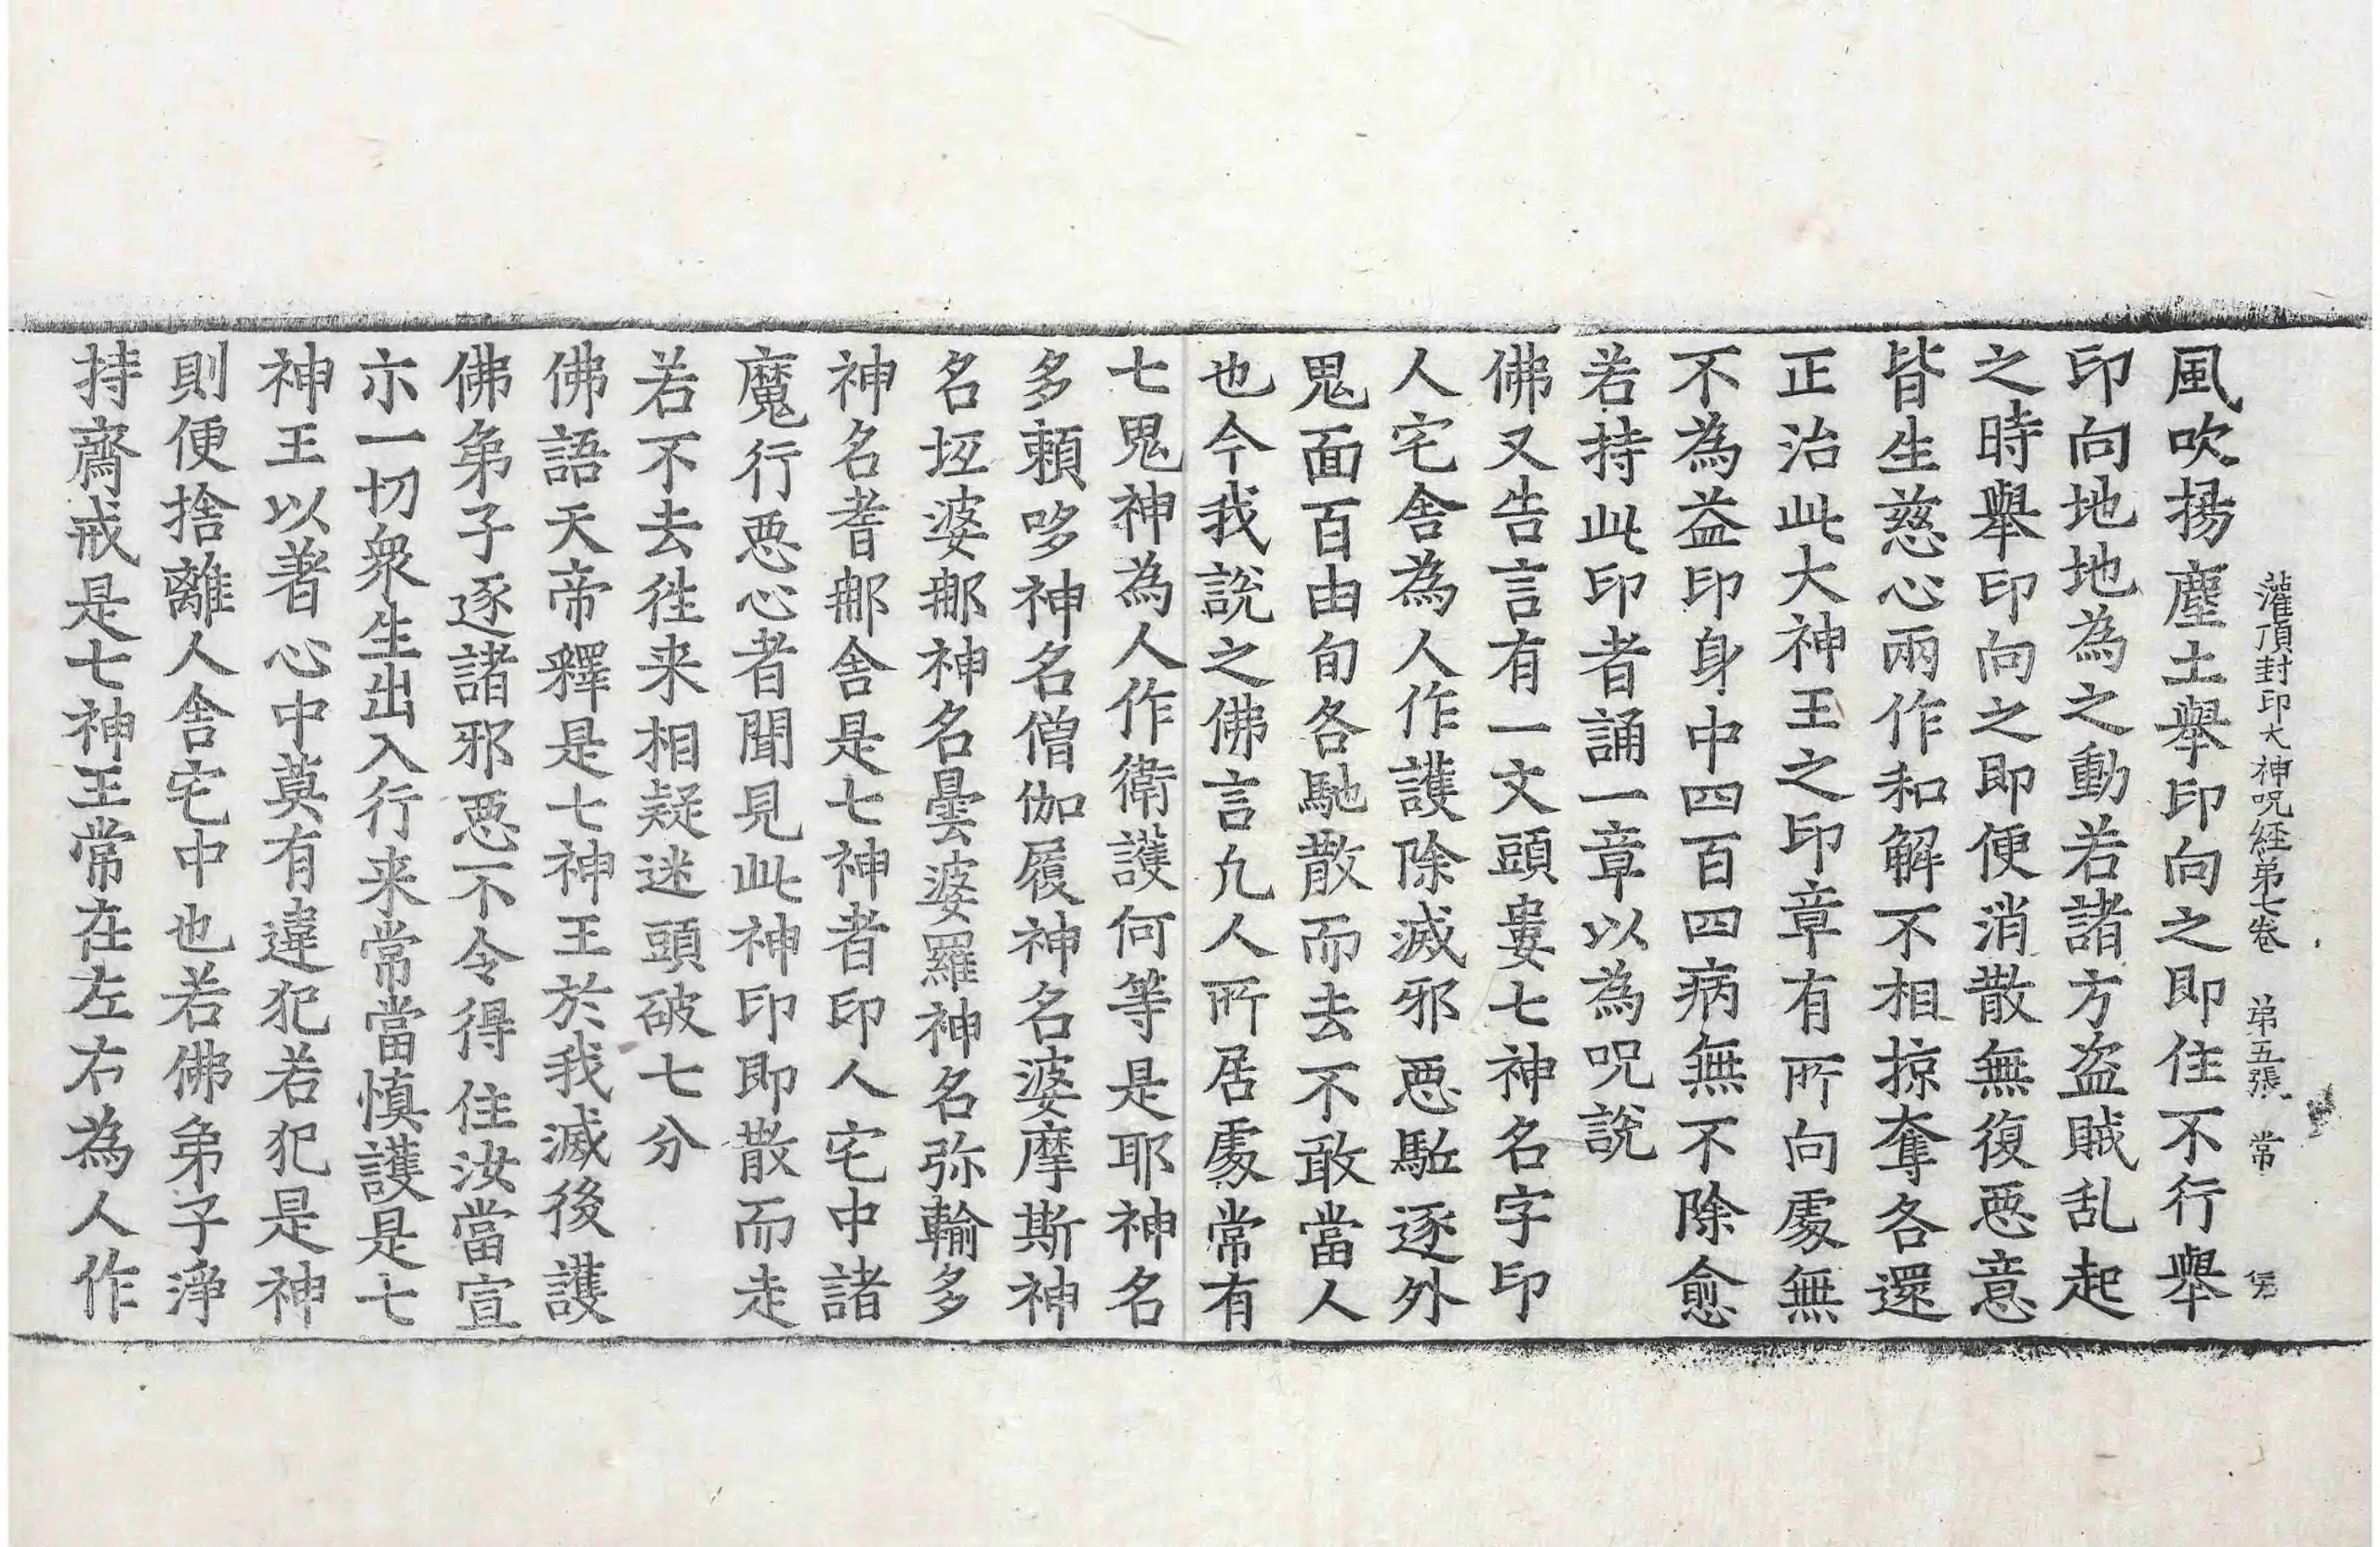 灌頂封印大神呪経弟七巻 弟五張 常
風吹揚塵土舉印向之即住不行舉
印向地地為之動若諸方盗賊乱起
之時舉印向之即便消散無復惡意
皆生慈心兩作和解不相掠奪各還
正治此大神王之印章有所向處無
不為益印身中四百四病無不除愈
若持此印者誦一章以為呪說
佛又告言有一文頭婁七神名字印
人宅舍為人作護除滅邪惡駈逐外
鬼面百由旬各馳散而去不敢當人
也今我說之佛言凢人所居處常有
七鬼神為人作衛護何等是耶神名
多賴哆神名僧伽履神名婆摩斯神
名坘婆郍神名曇婆羅神名弥輸多
神名耆郍舍是七神者印人宅中諸
魔行惡心者聞見此神印即散而走
若不去徃来相疑迷頭破七分
佛語天帝釋是七神王於我滅後護
佛弟子逐諸邪惡不令得住汝當宣
示一切衆生出入行来常當慎護是七
神王以著心中莫有違犯若犯是神
則便捨離人舍宅中也若佛弟子淨
持齋戒是七神王常在左右為人作